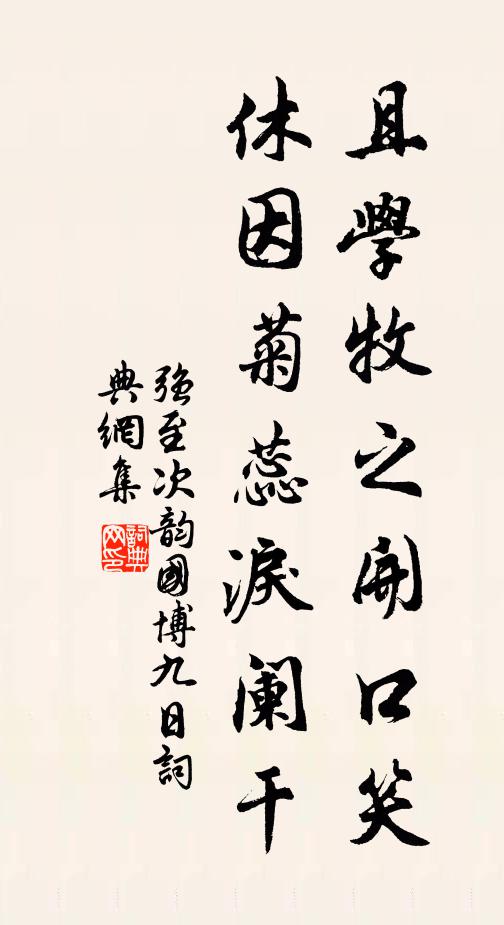 且學牧之開口笑
休因菊蕊淚闌干
強至次韵國博九日詞
典網集
詞典
网印